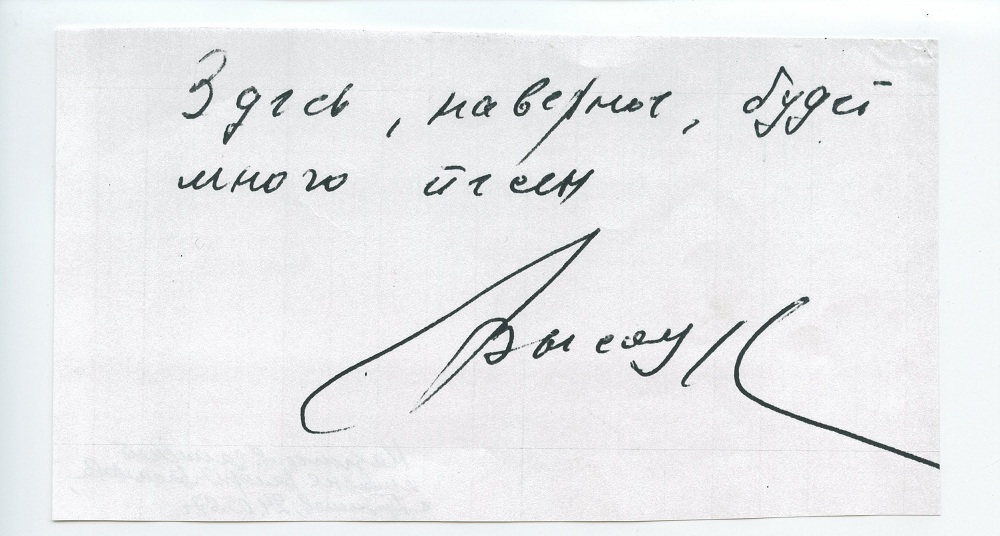 Здесь, наверное, будет
много песен
Высоцк